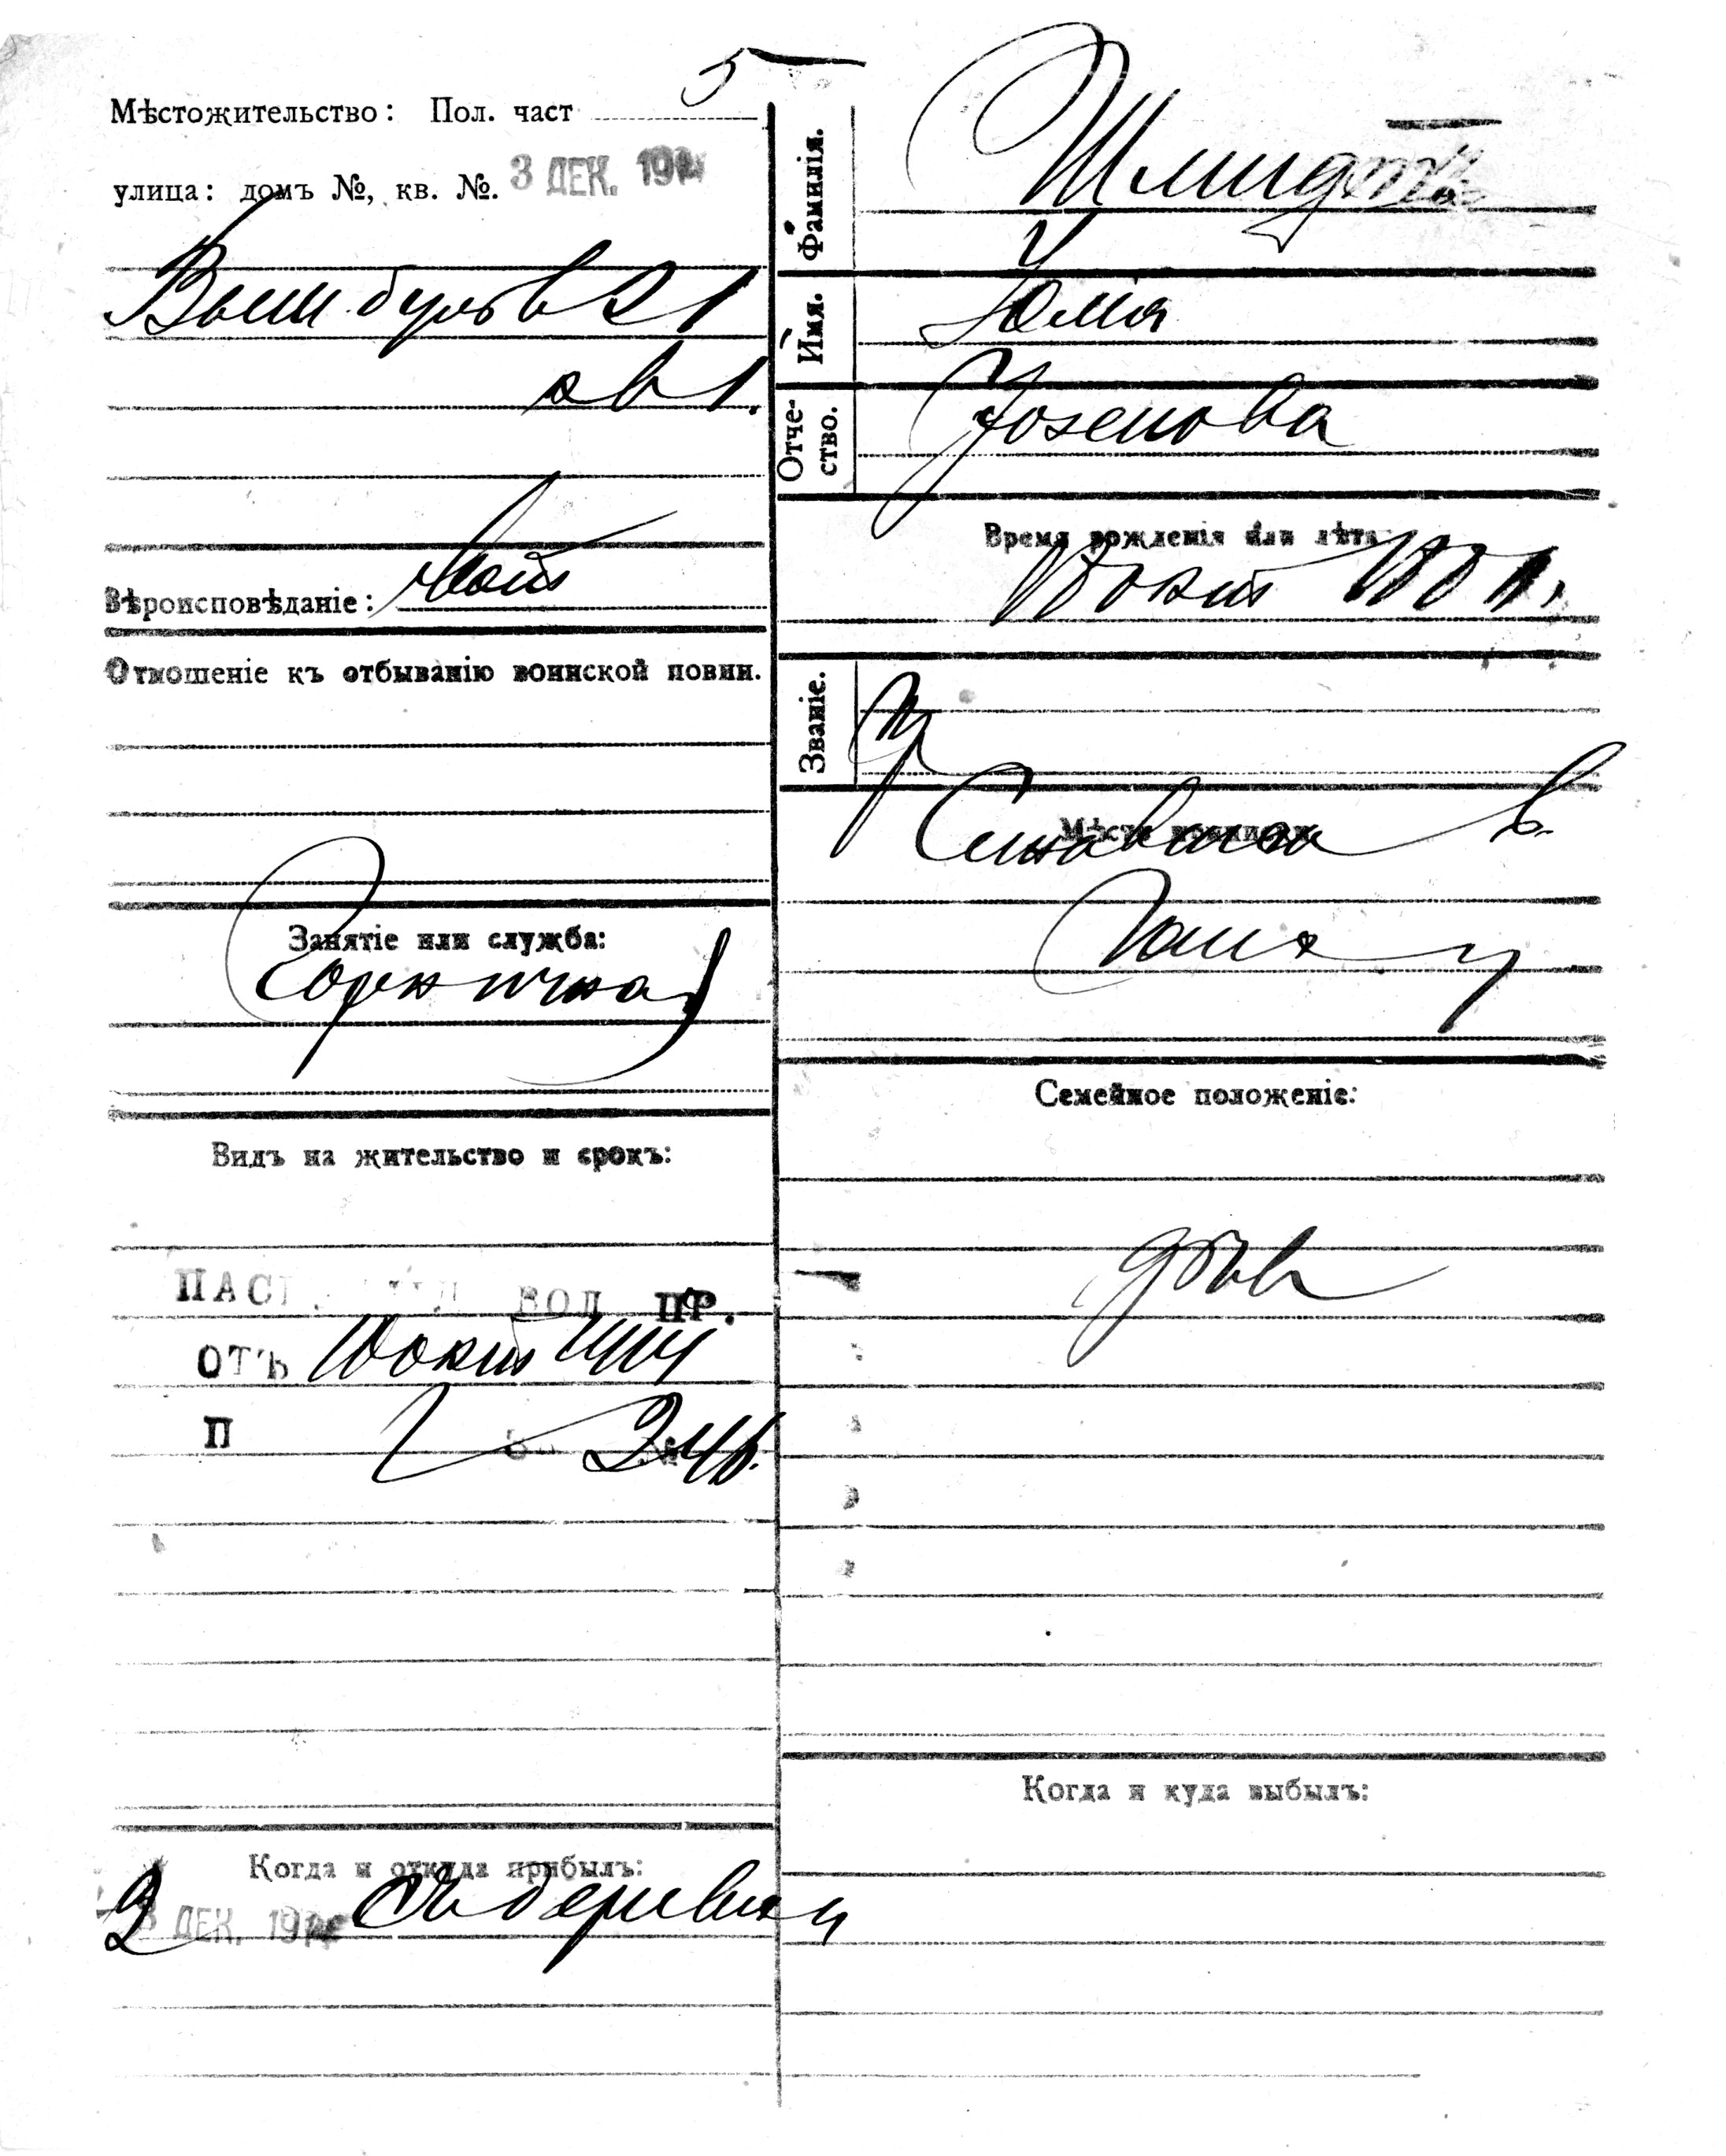 Мѣстожительство: Пол. част 5
улица: домъ №, кв. №. 3 ДЕК. 191
Выш бульв 21
кв 1.
Вѣроисповѣданіе:
Отношеніе къ отбыванію воинской повин.
Занятіе или служба:
Горничная
Видъ на жительство и срокъ:
ПАС ВОЛ ПР.
ОТЪ 10 окт
П 246.
Когда и откуда прибылъ:
2 ДЕК. 191 Съ деревни
Фамилія. Шмидтъ
Имя. Юлія
Отче-
ство. Юзепова
Время рожденія или лѣта
окт
Званіе. кр
Мѣсто приписки
Сенявская в.
Семейное положеніе:
дѣв
Когда и куда выбылъ: